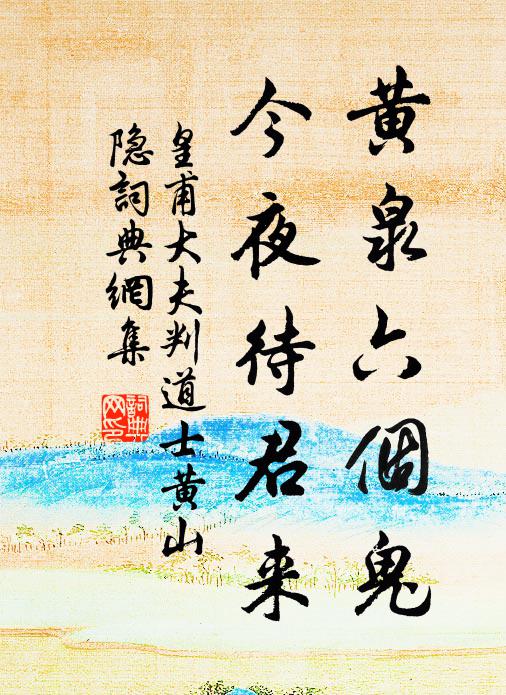 黄泉六個鬼
今夜待君来
皇甫大夫判道士黄山
隐詞典網集
詞典
网印